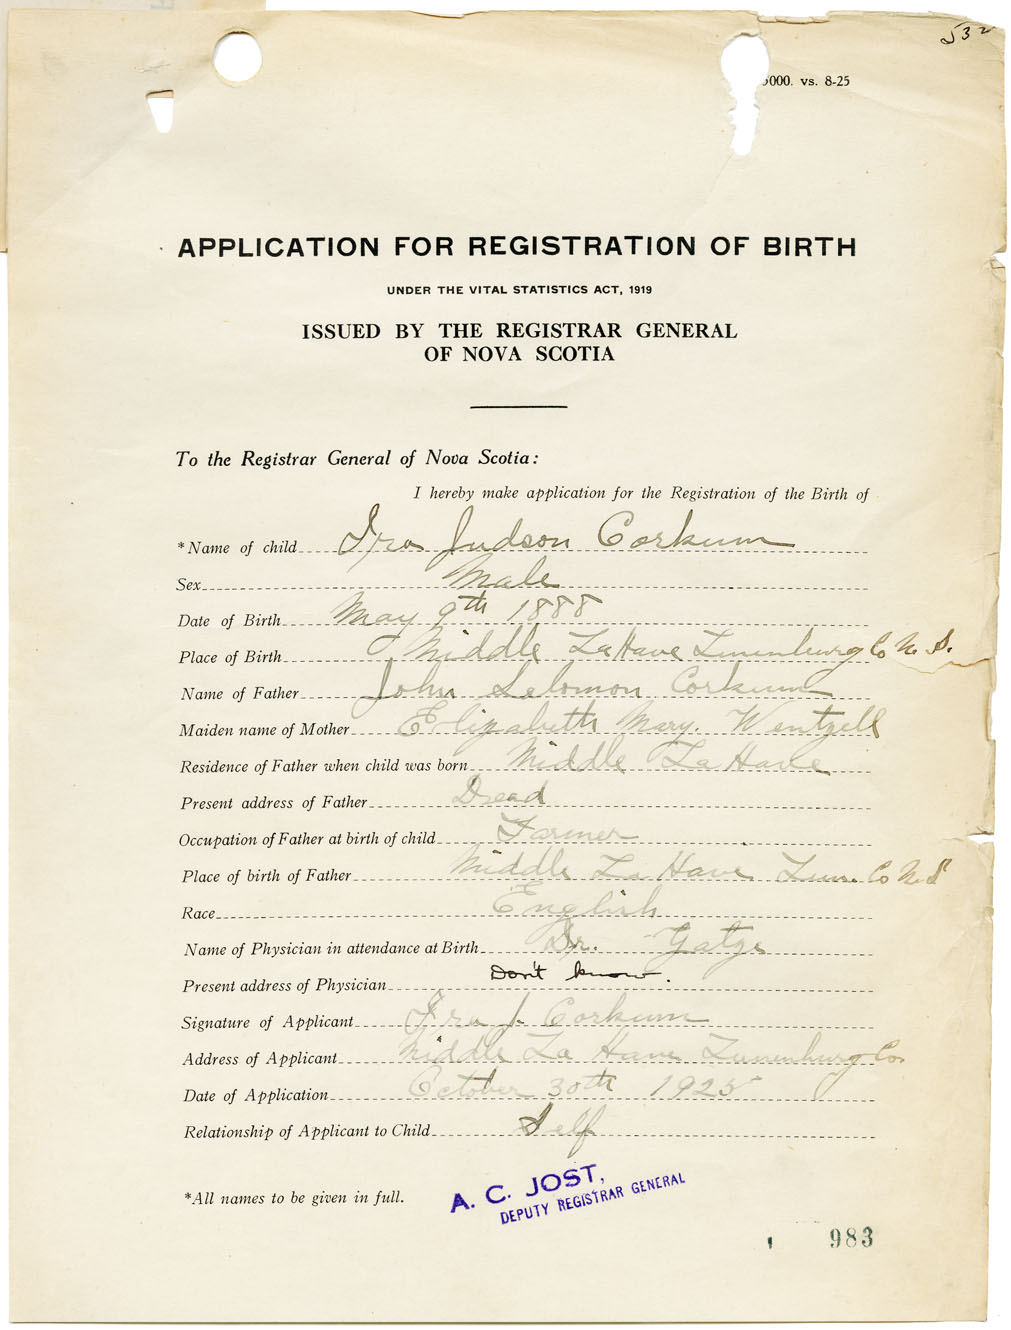 532
000. vs. 8-25
APPLICATION FOR REGISTRATION OF BIRTH
UNDER THE VITAL STATISTICS ACT, 1919
ISSUED BY THE REGISTRAR GENERAL
OF NOVA SCOTIA
To the Registrar General of Nova Scotia:
I hereby make application for the Registration of the Birth of
*Name of child Ira Judson Corkum
Sex Male
Date of Birth May 9th 1888
Place of Birth Middle LaHave Lunenburg Co N. S.
Name of Father John Solomon Corkum
Maiden name of Mother Elizabeth Mary. Wentzell
Residence of Father when child was born Middle La Have
Present address of Father Dead
Occupation of Father at birth of child Farmer
Place of birth of Father Middle La Have Lun. Co N.S
Race English
Name of Physician in attendance at Birth Dr.
Present address of Physician Don't know.
Signature of Applicant Ira J. Corkum
Address of Applicant Middle La Have Lunenburg Co.
Date of Application October 30th 1925
Relationship of Applicant to Child Self
*All names to be given in full.
A. C. JOST,
DEPUTY REGISTRAR GENERAL
983